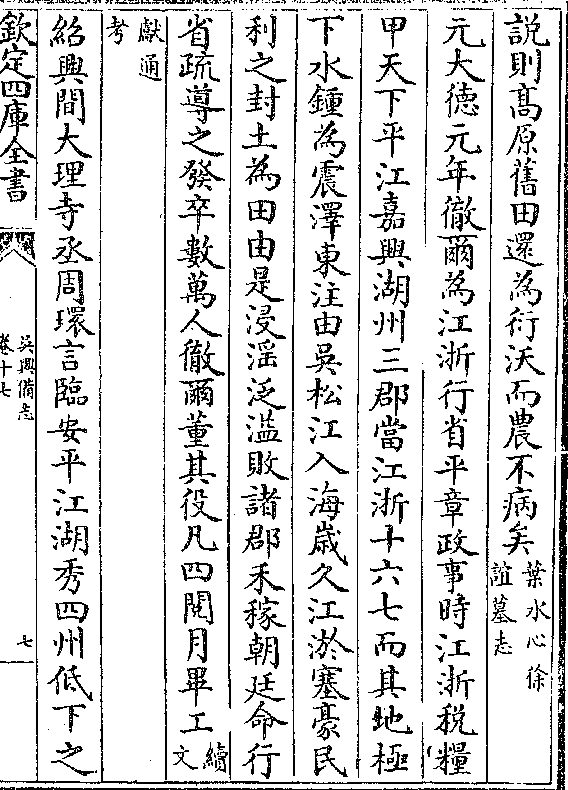 説則髙原舊田還為衍沃而農不病矣葉水心徐誼墓志
元大徳元年徹爾為江浙行省平章政事時江浙税糧
甲天下平江嘉興湖州三郡當江浙十六七而其地極
下水鍾為震澤東注由吳松江入海歳久江淤塞豪民
利之封土為田由是浸滛泛濫敗諸郡禾稼朝廷命行
省疏導之發卒數萬人徹爾董其役凡四閲月畢工續文
獻通考
紹興間大理寺丞周環言臨安平江湖秀四州低下之
欽定四庫全書
吳興備志
卷十七
七